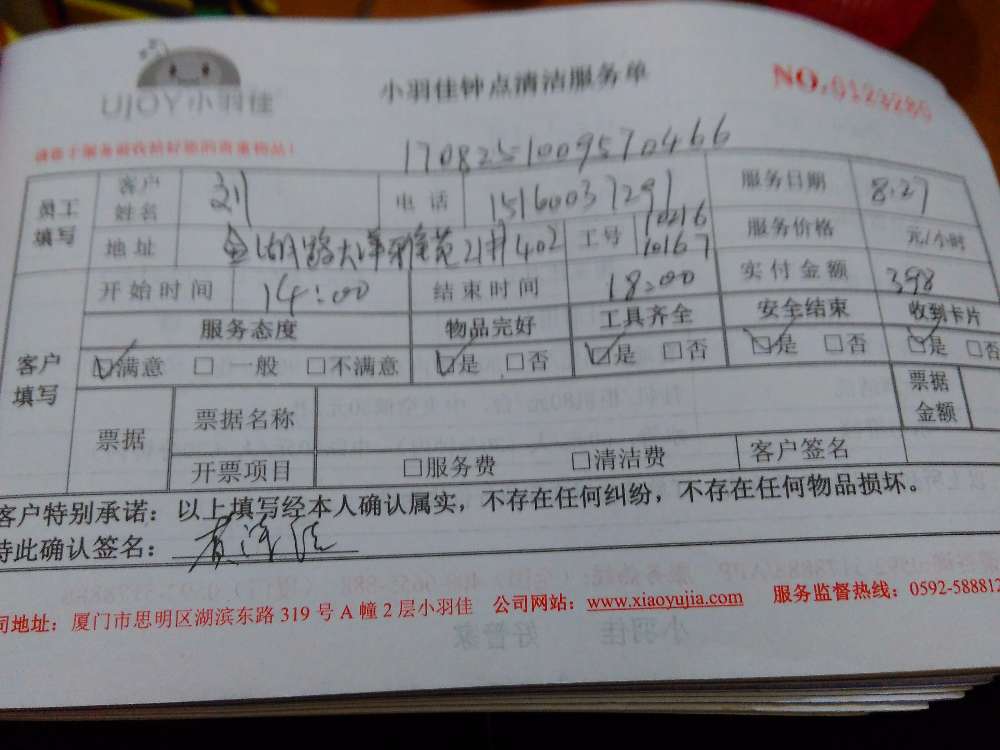 UJOY小羽佳
小羽佳钟点清洁服务单
NO.0123286
170825100957０466
员工填写 客户姓名 刘 电话 15160037291 服务日期 8.27
地址 湖路大洋 苑 402 工号 10216 10167 服务价格 元/小时
客户填写 开始时间 14:00 结束时间 18:00 实付金额 398
服务态度 物品完好 工具齐全 安全结束 收到卡片
☑满意 □ 一般 □不满意 ☑是 □否 ☑是 □否 ☑是 □否 ☑是 □否
票据 票据名称 票据金额
开票项目 □服务费 □清洁费 客户签名
客户特别承诺：以上填写经本人确认属实，不存在任何纠纷，不存在任何物品损坏。
特此确认签名：
司地址：厦门市思明区湖滨东路 319 号 A 幢 2 层小羽佳 公司网站：www.xiaoyujia.com 服务监督热线：0592-588812